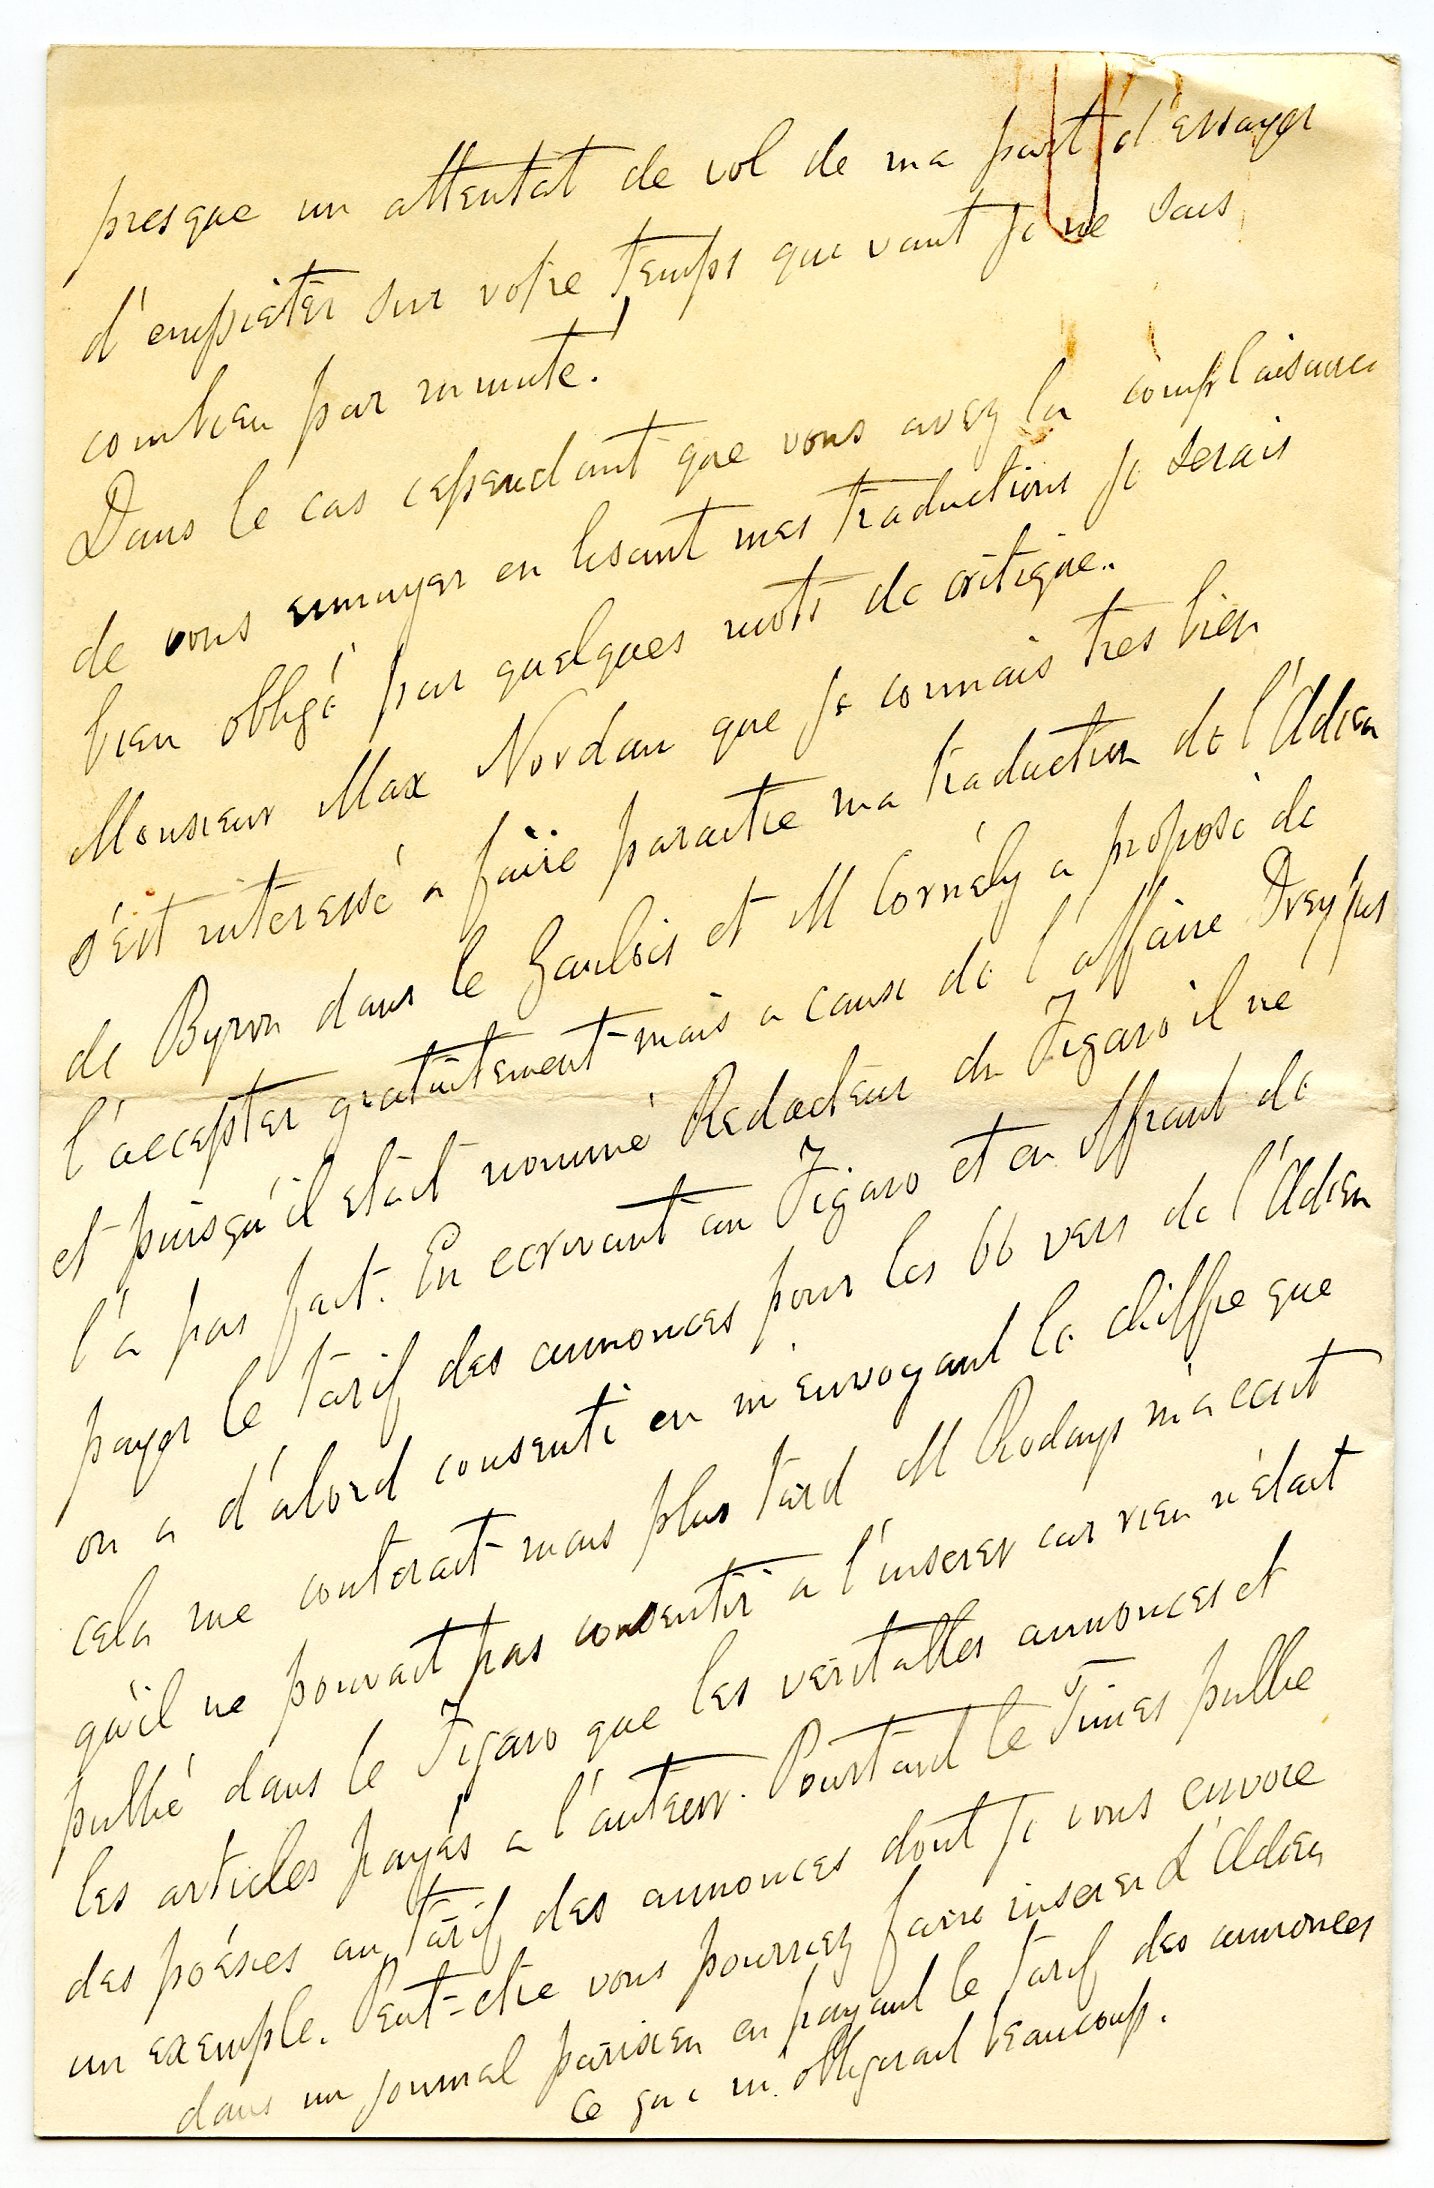 presque un attentat de vol de ma part d'essayer
d'empiéter sur votre temps qui vaut je ne sais
combien par minute!
Dans le cas cependant que vous avez la complaisance
de vous ennuyer en lisant mes traductions je serais
bien obligé par quelques mots de critique.
Monsieur Max Nordau que je connais tres bien
s'est interessé a faire paraitre ma traduction de l'Adieu
de Byron dans le Gaulois et M Cornély a proposé de
l'accepter gratuitement mais a cause de l'affaire Dreyfus
et puisqu'il etait nommé Redacteur du Figaro il ne
l'a pas fait. En ecrivant au Figaro et en offrant de
payer le tarif des annonces pour les 66 vers de l'Adieu
on a d'abord consenti en m'envoyant le chiffre que
cela me couterait mais plus tard M Rodays m'a ecrit
qu'il ne pouvait pas consentir a l'inserer car rien n'était
publié dans le Figaro que les veritables annonces et
les articles payés a l'auteur. Pourtant le Times publie
des poésies au tarif des annonces dont je vous envoie
un exemple. Peut-etre vous pourriez faire inserer L'Adieu
dans un journal parisien en payant le tarif des annonces
ce qui m'obligerait beaucoup.